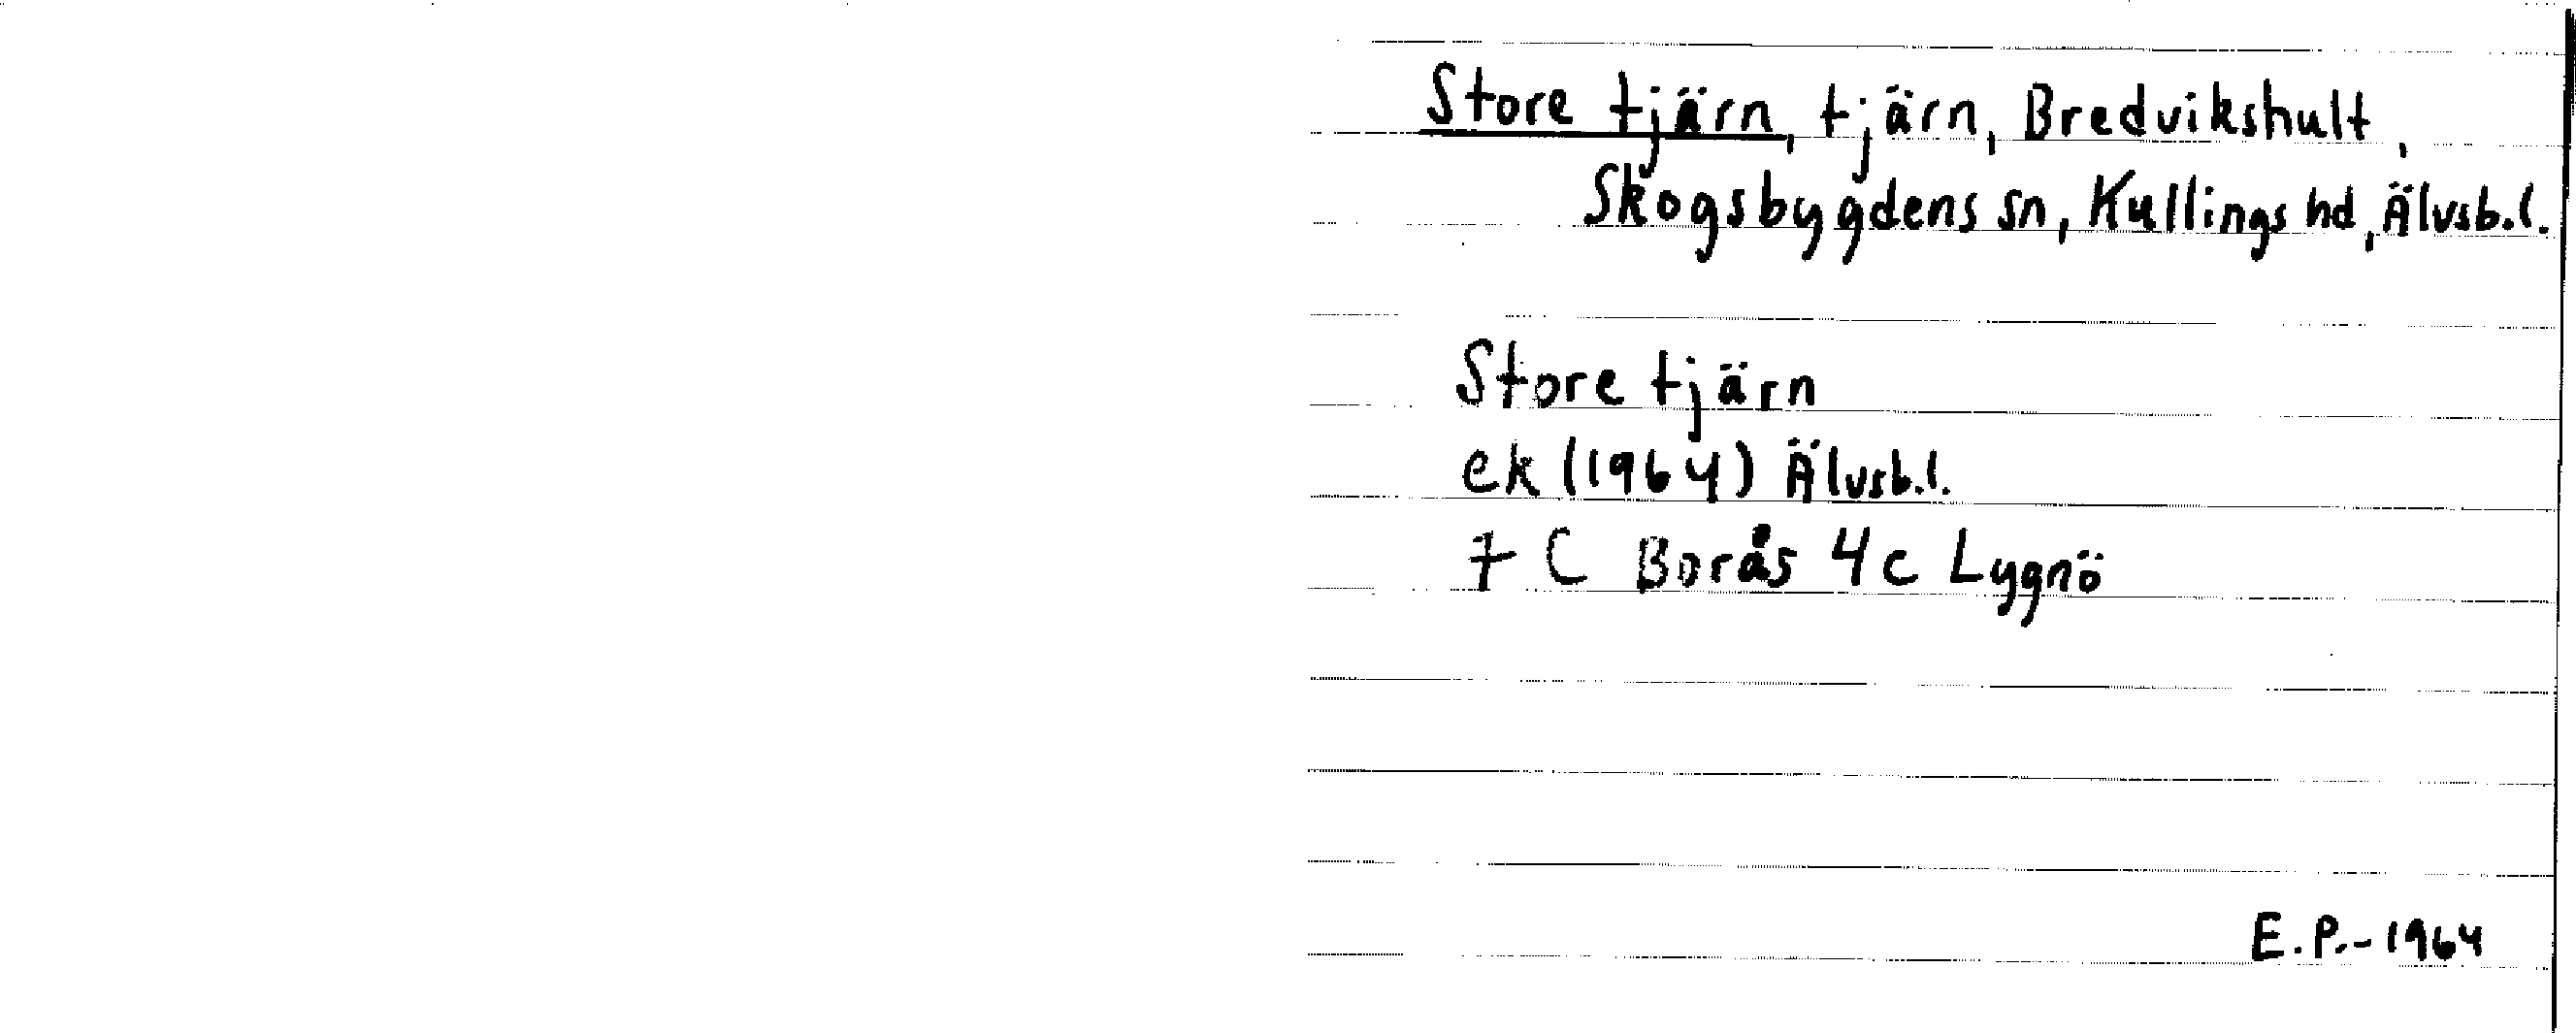 Store tjärn, tjärn, Bredvikshult,
Skogsbygdens sn, Kullings hd, Älvsb.l.
Store tjärn
ek (1964) Älvsb.l.
7 C Borås 4c Lygnö
E.P.-1964